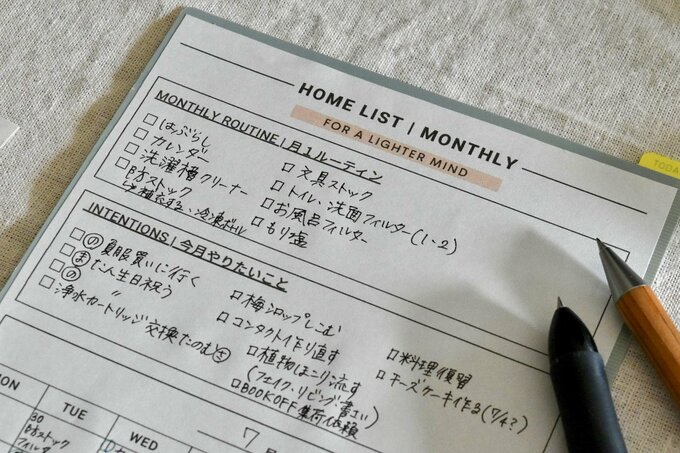 HOME LIST | MONTHLY
FOR A LIGHTER MIND
TODA
MONTHLY ROUTINE | 月1ルーティン
はぶらし
カレンダー
洗濯槽クリーナー
ストック
冷凍ボトル
文具ストック
トイレ、洗面フィルター(1-2)
お風呂フィルター
もり塩
INTENTIONS | 今月やりたいこと
の 夏服買いに行く
ま だんへ生日祝う
の 〃
浄水カートリッジ交換たのむ
梅シロップしこむ
コンタクト作り直す
植物ほこり流す
(フェイク・リビング・書斎)
BOOKOFF 集荷依頼
料理復習
チーズケーキ作る(7/4?)
7
ON
TUE
WED
30
ストック
フィルタ